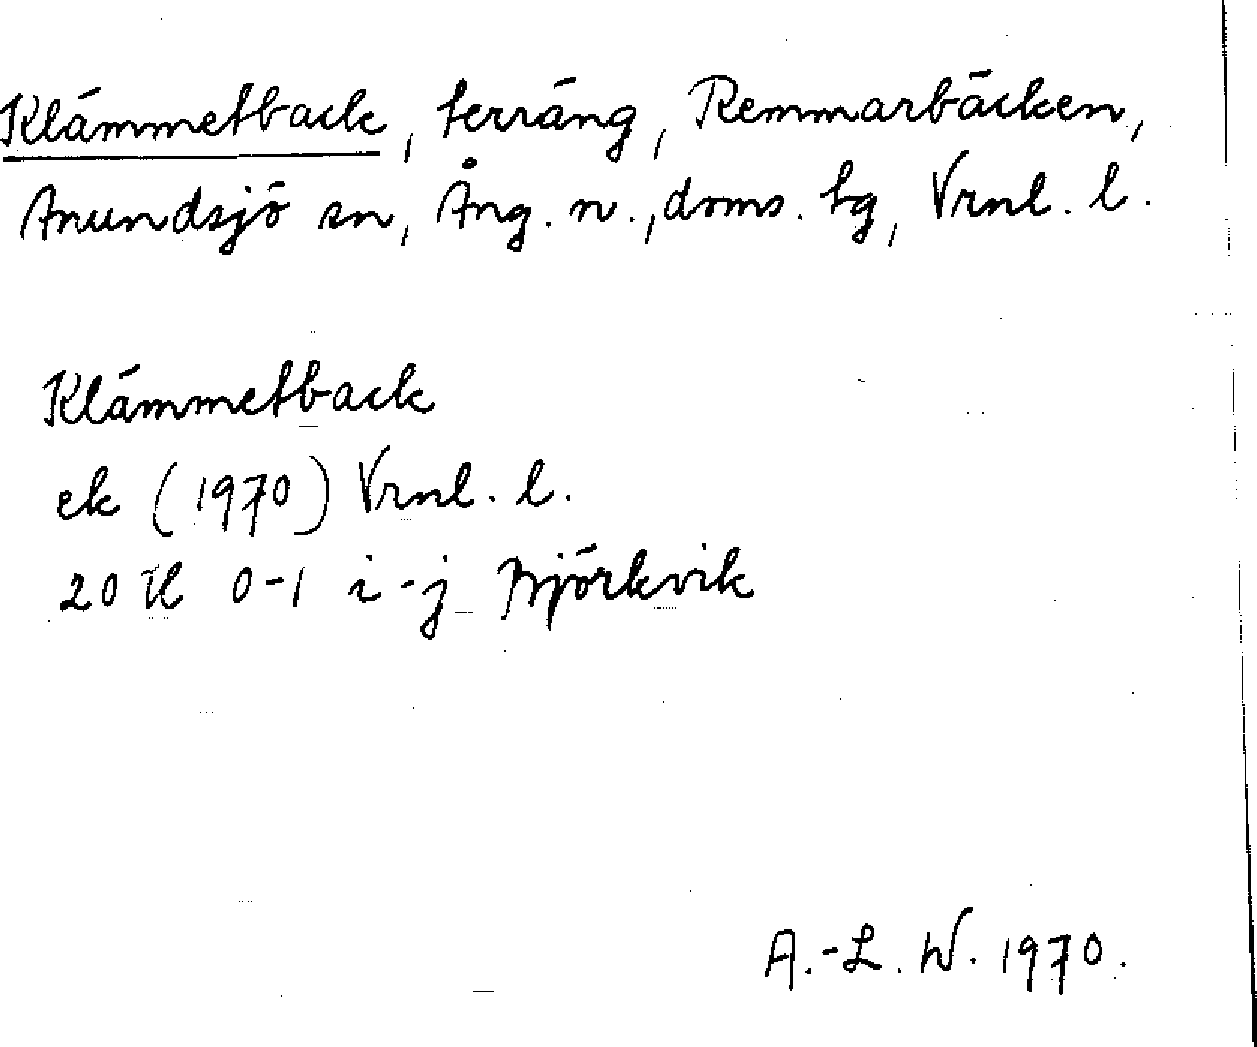 Klämmetback, terräng, Remmarbäcken,
Anundsjö sn, Ång. n., doms. tg, Vrnl. l.
Klämmetback
ek (1970) Vrnl. l.
20 H 0-1 i-j Björkvik
A.-L. W. 1970.